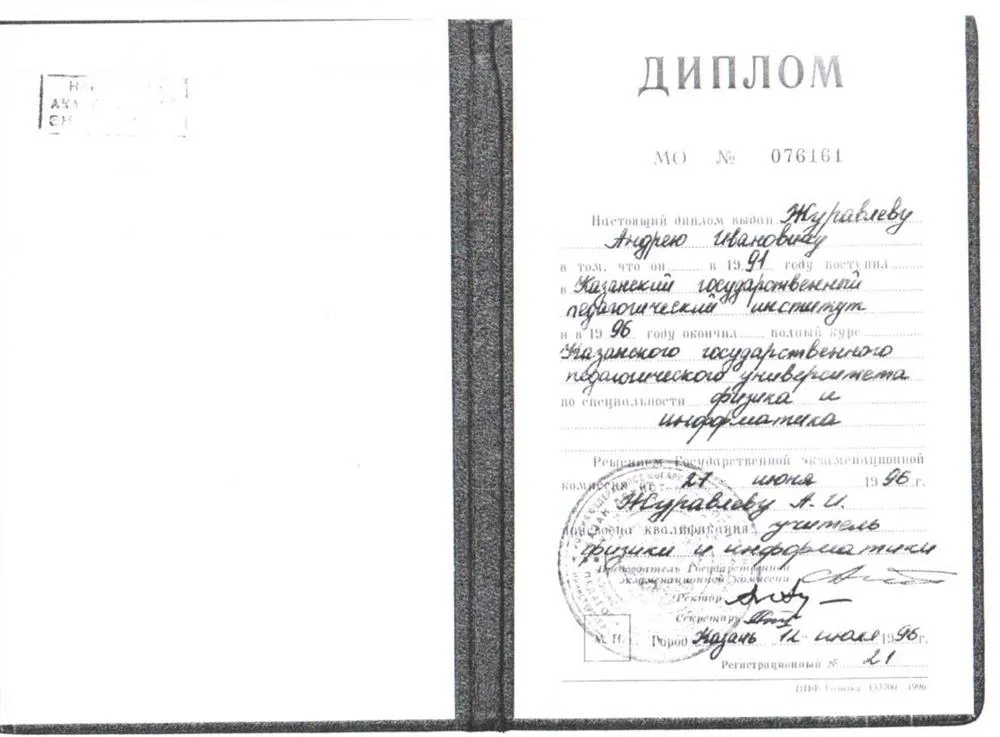 ДИПЛОМ
МО № 076161
Настоящий диплом выдан Журавлеву
Андрею Ивановичу
в том, что он в 1991 году поступил
в Казанский государственный
педагогический институт
и в 1996 году окончил полный курс
Казанского государственного
педагогического университета
по специальности физика и
информатика
Решением Государственной экзаменационной
комиссии от 21 июня 1996 г.
Журавлеву А. И.
присвоена квалификация учитель
физики и информатики
Председатель Государственной
экзаменационной комиссии
Ректор
Секретарь
М. П. Город Казань 12 июля 1996 г.
Регистрационный № 21
1996